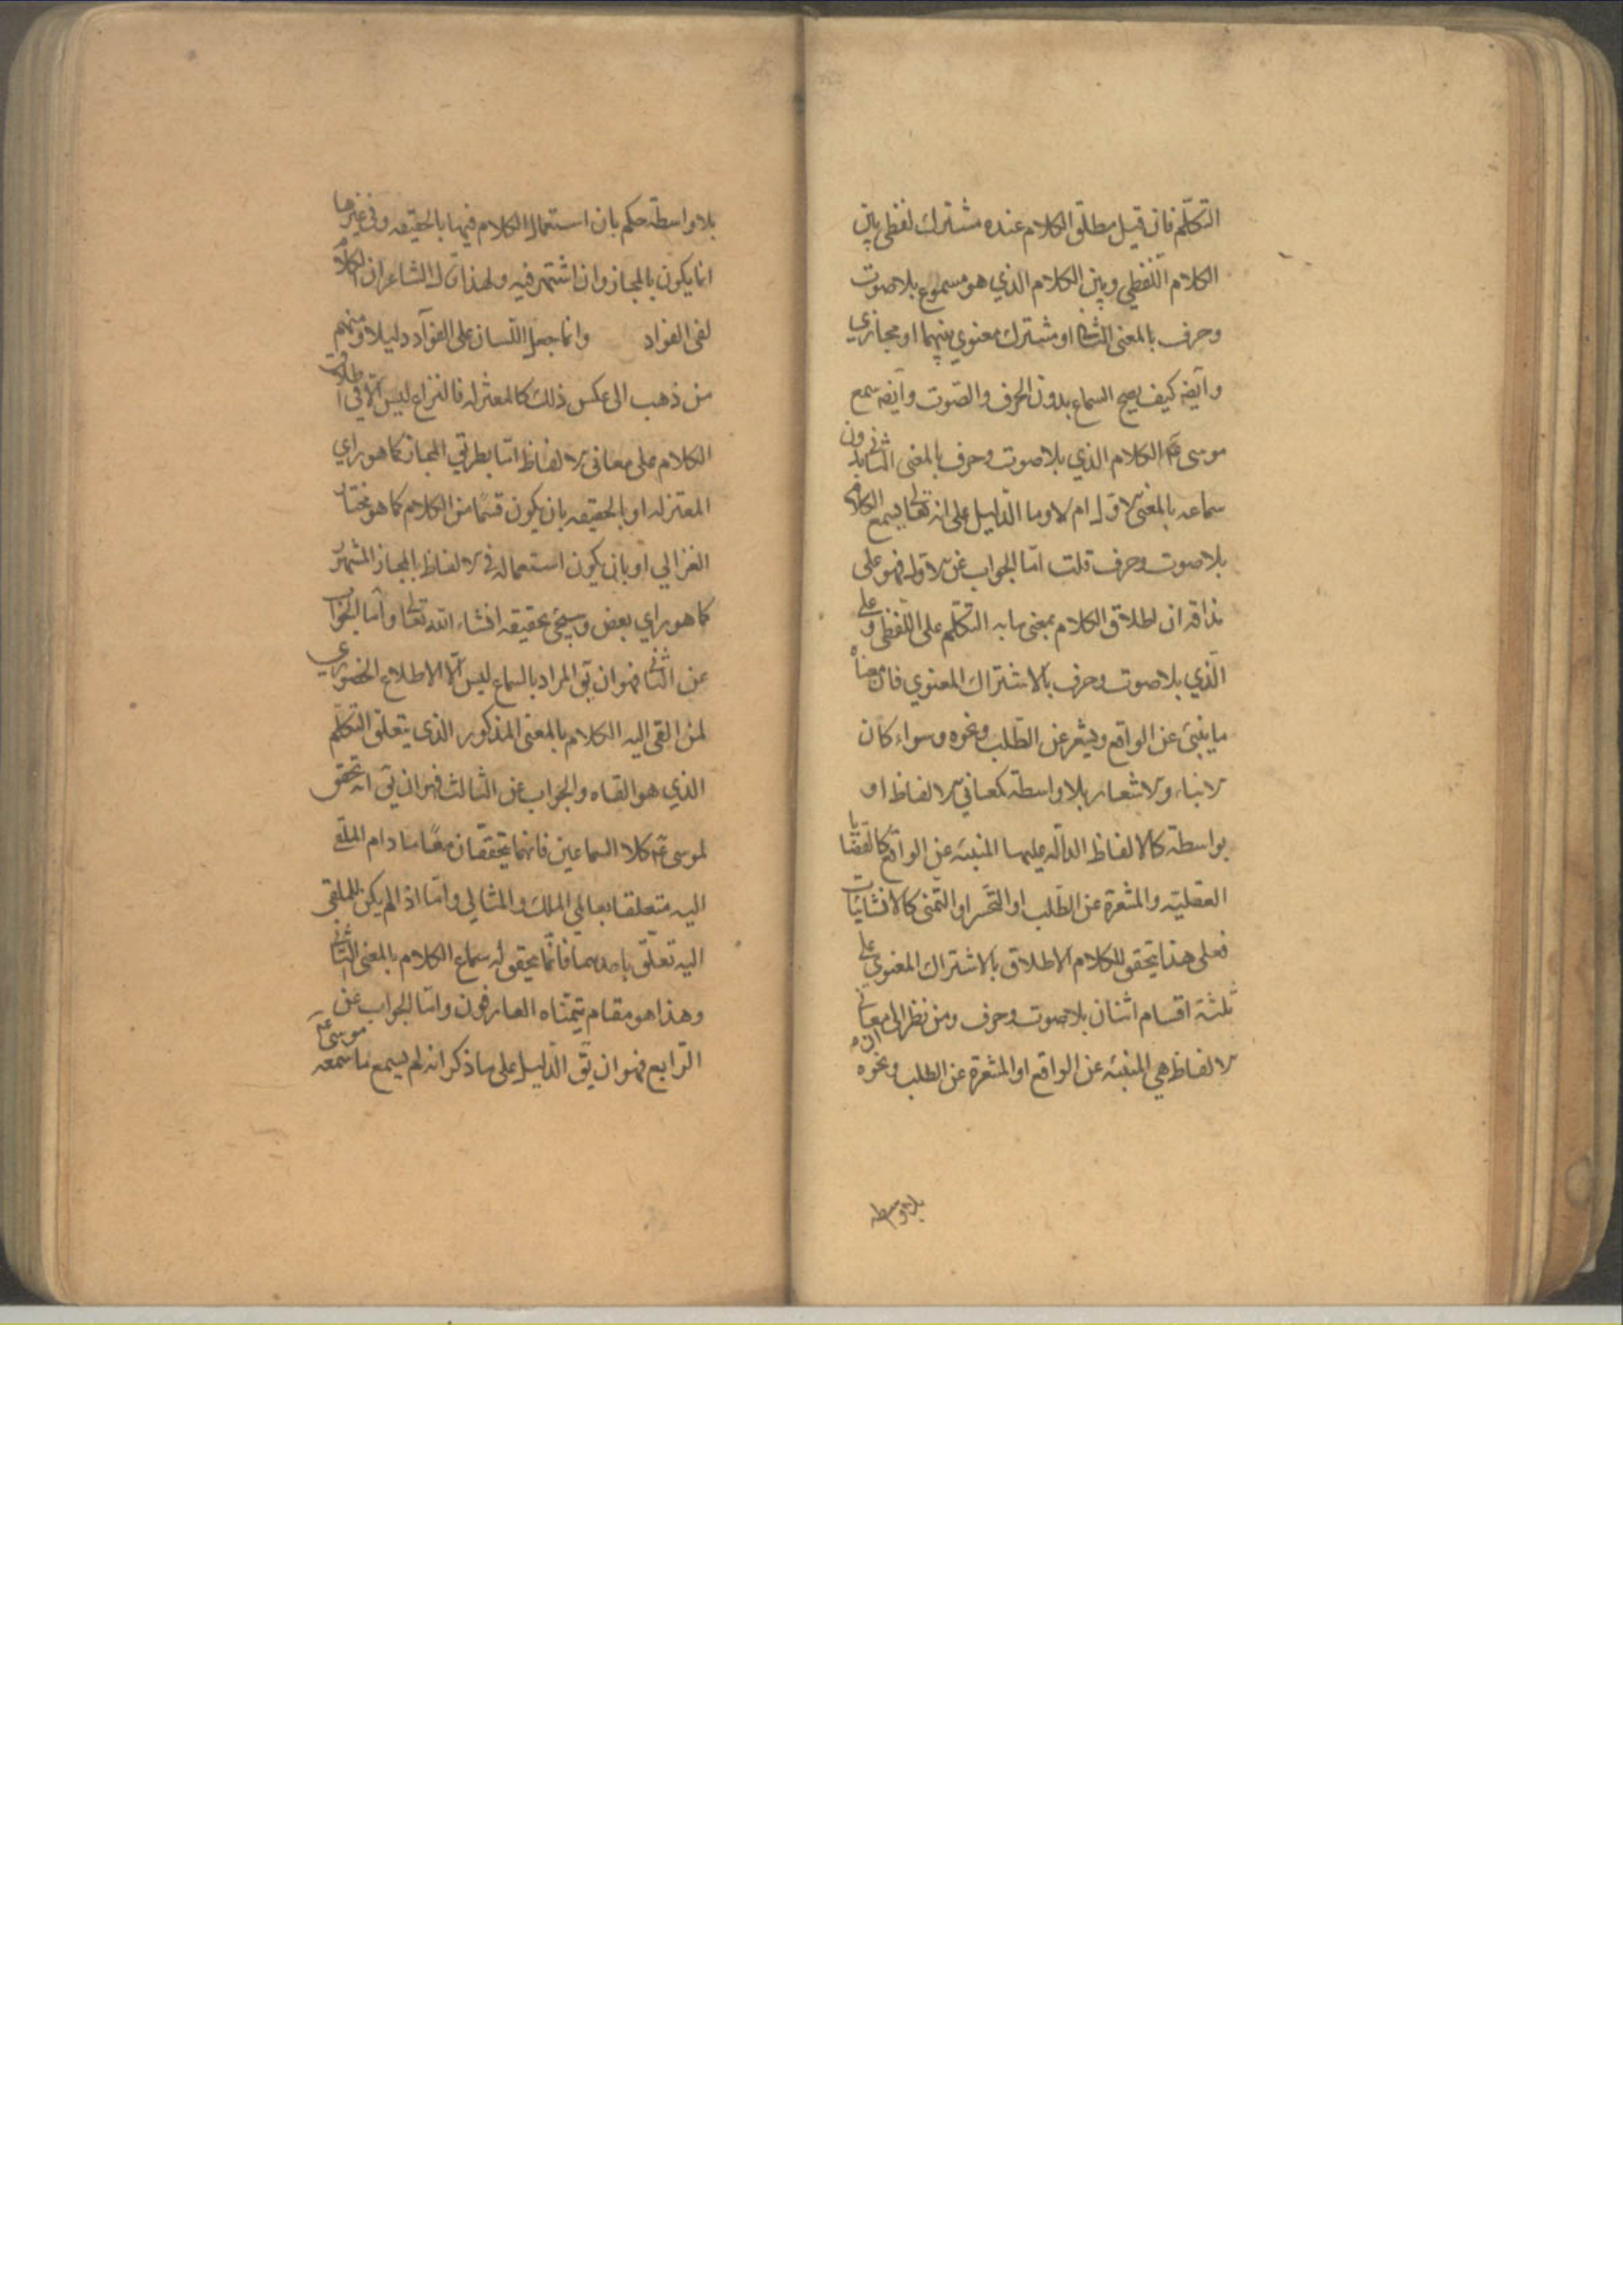 التكلّم فان قيل مطلق الكلام عنده مشترك لفظى بين
الكلام اللفظي وبين الكلام الذي هو مسموع بلا صوت
وحرف بالمعنى الثانى او مشترك معنوي بينهما او مجازي
وايضه كيف يصح السماع بدون الحرف والصوت وايضه سمع
موسى عم الكلام الذي بلا صوت وحرف بالمعنى الثانى بدون
سماعه بالمعنى الاول ام لا وما الدليل على انه تعالى يسمع الكلام
بلا صوت وحرف قلت امّا الجواب عن الاول فهو على
مذاقه ان اطلاق الكلام بمعنى ما به التكلّم على اللفظى وعلى
الّذي بلا صوت وحرف بالاشتراك المعنوي فان معناه
ما ينبئ عن الواقع ويشعر عن الطّلب ونحوه وسواء كان
الانباء والاشعار بلا واسطة كمعاني الالفاظ او
بواسطة كالالفاظ الدالّه عليها المنبئه عن الواقع كالقضايا
العقليّه والمشعرة عن الطّلب او التحسر او التمنى كالانشائيات
فعلى هذا يتحقق للكلام الاطلاق بالاشتراك المعنوي على
ثلثة اقسام اثنان بلا صوت وحرف ومن نظر الى ان معانى
الالفاظ هي المنبئه عن الواقع او المشعرة عن الطلب ونحوه
بلا واسطه
بلا واسطة حكم بان استعمال الكلام فيها بالحقيقه وفي غيرها
انما يكون بالمجاز وان اشتهر فيه ولهذا قال الشاعر ان الكلام
لفى الفواد وانما جعل اللّسان على الفوآد دليلا ومنهم
من ذهب الى عكس ذلك كالمعتزله فالنزاع ليس الّا في اطلاق
الكلام على معانى الالفاظ امّا بطريق المجاز كما هو راي
المعتزله او بالحقيقه بان يكون قسمًا من الكلام كما هو مختار
الغزالي او بان يكون استعماله في الالفاظ بالمجاز المشهر
كما هو راي بعض وسيجئ تحقيقه انشاء الله تعالى وامّا الجواب
عن الثانى فهو ان يق المراد بالسماع ليس الّا الاطلاع الحضوري
لمن القى اليه الكلام بالمعنى المذكور الذى يتعلق التكلّم
الذي هو القاه والجواب عن الثالث فهو ان يق انه تحقق
لموسى عم كلا السماعين فانهما يتحققان معًا ما دام الملقى
اليه متعلقا بعالمي الملك والمثالي وامّا اذا لم يكن للملقى
اليه تعلّق باحدهما فانّما يتحقق له سماع الكلام بالمعنى الثانى
وهذا هو مقام يتمنّاه العارفون وامّا الجواب عن
الرّابع فهو ان يق الّدليل على ما ذكر انه لم يسمع ما سمعه موسى عم